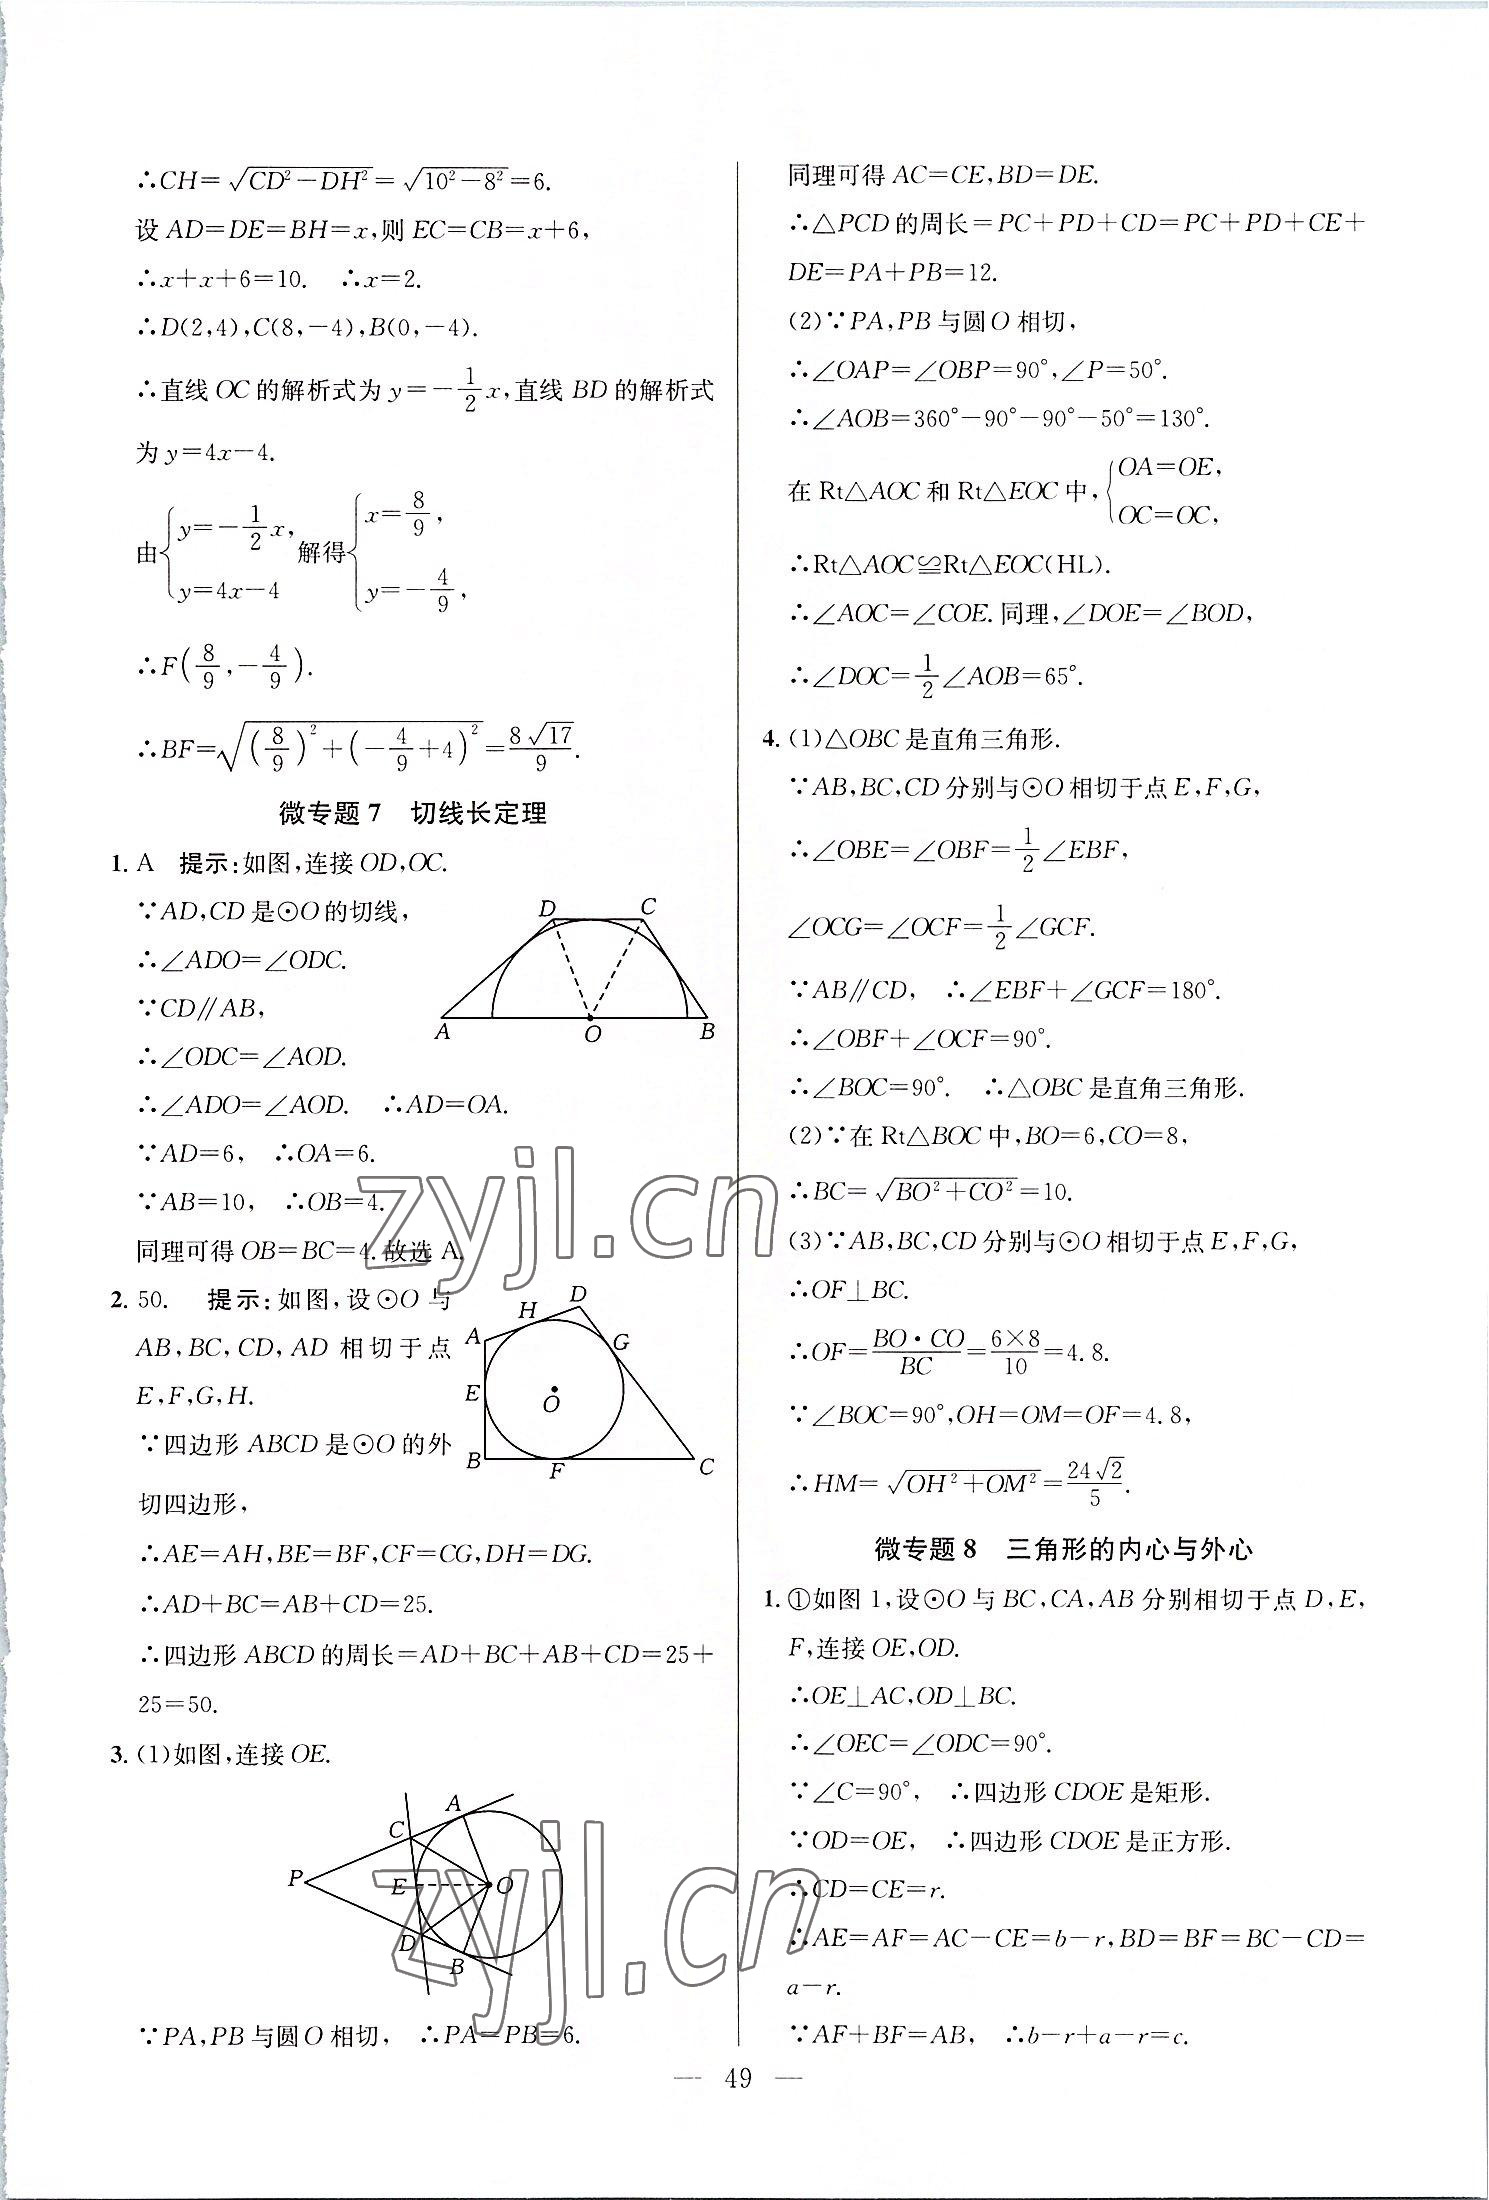 ∴CH=√(CD²-DH²)=√(10²-8²)=6.
设 AD=DE=BH=x,则 EC=CB=x+6,
∴x+x+6=10. ∴x=2.
∴D(2,4),C(8,-4),B(0,-4).
∴直线 OC 的解析式为 y=-1/2x,直线 BD 的解析式
为 y=4x-4.
由{y=-1/2x, y=4x-4 解得{x=8/9, y=-4/9,
∴F(8/9,-4/9).
∴BF=√((8/9)²+(-4/9+4)²)=8√17/9.
微专题 7 切线长定理
1. A 提示:如图,连接 OD,OC.
∵AD,CD 是⊙O 的切线,
∴∠ADO=∠ODC.
∵CD∥AB,
∴∠ODC=∠AOD.
∴∠ADO=∠AOD. ∴AD=OA.
∵AD=6, ∴OA=6.
∵AB=10, ∴OB=4.
同理可得 OB=BC=4.故选 A.
D C
A O B
2. 50. 提示:如图,设⊙O 与
AB,BC,CD,AD 相切于点
E,F,G,H.
∵四边形 ABCD 是⊙O 的外
切四边形,
H D
A G
E O
B F C
∴AE=AH,BE=BF,CF=CG,DH=DG.
∴AD+BC=AB+CD=25.
∴四边形 ABCD 的周长=AD+BC+AB+CD=25+
25=50.
3. (1)如图,连接 OE.
A
C
P E O
D
B
∵PA,PB 与圆 O 相切, ∴PA=PB=6.
同理可得 AC=CE,BD=DE.
∴△PCD 的周长=PC+PD+CD=PC+PD+CE+
DE=PA+PB=12.
(2)∵PA,PB 与圆 O 相切,
∴∠OAP=∠OBP=90°,∠P=50°.
∴∠AOB=360°-90°-90°-50°=130°.
在 Rt△AOC 和 Rt△EOC 中,{OA=OE, OC=OC,
∴Rt△AOC≌Rt△EOC(HL).
∴∠AOC=∠COE.同理,∠DOE=∠BOD,
∴∠DOC=1/2∠AOB=65°.
4. (1)△OBC 是直角三角形.
∵AB,BC,CD 分别与⊙O 相切于点 E,F,G,
∴∠OBE=∠OBF=1/2∠EBF,
∠OCG=∠OCF=1/2∠GCF.
∵AB∥CD, ∴∠EBF+∠GCF=180°.
∴∠OBF+∠OCF=90°.
∴∠BOC=90°. ∴△OBC 是直角三角形.
(2)∵在 Rt△BOC 中,BO=6,CO=8,
∴BC=√(BO²+CO²)=10.
(3)∵AB,BC,CD 分别与⊙O 相切于点 E,F,G,
∴OF⊥BC.
∴OF=BO·CO/BC=6×8/10=4.8.
∵∠BOC=90°,OH=OM=OF=4.8,
∴HM=√(OH²+OM²)=24√2/5.
微专题 8 三角形的内心与外心
1. ①如图 1,设⊙O 与 BC,CA,AB 分别相切于点 D,E,
F,连接 OE,OD.
∴OE⊥AC,OD⊥BC.
∴∠OEC=∠ODC=90°.
∵∠C=90°, ∴四边形 CDOE 是矩形.
∵OD=OE, ∴四边形 CDOE 是正方形.
∴CD=CE=r.
∴AE=AF=AC-CE=b-r,BD=BF=BC-CD=
a-r.
∵AF+BF=AB, ∴b-r+a-r=c.
— 49 —
zyjl.cn
zyjl.cn